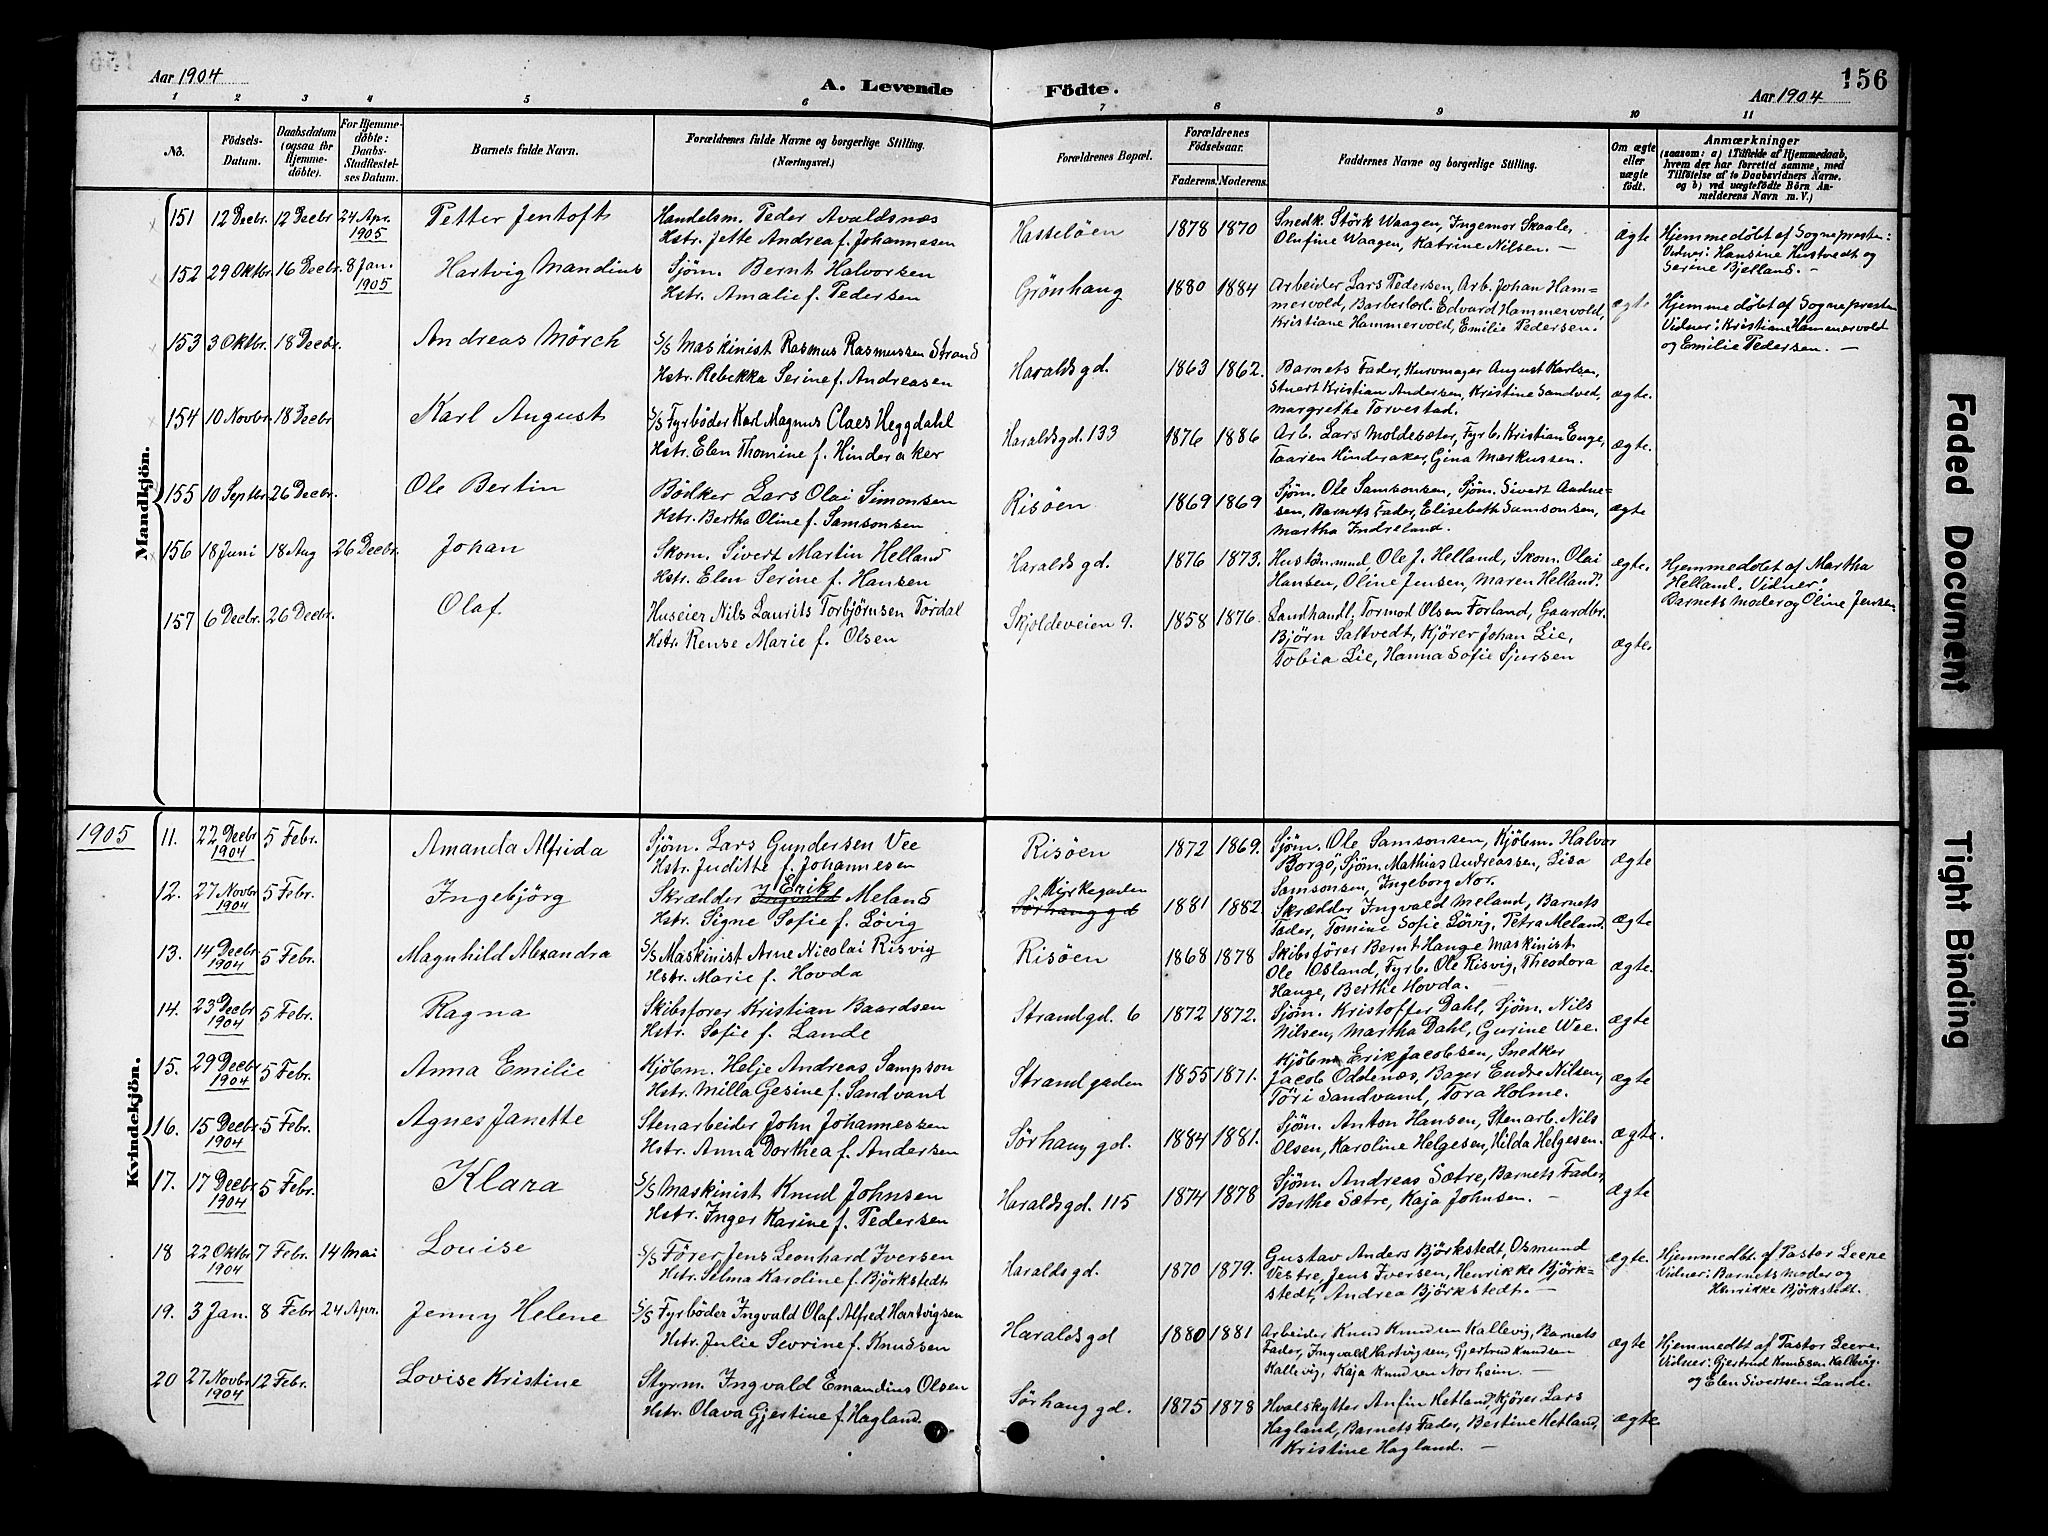 156
Aar 1904
A. Levende Födte.
Aar 1904
1 2 3 4 5 6 7 8 9 10 11
No.
Födsels-Datum.
Daabsdatum (ogsaa for Hjemmedöbte).
For Hjemmedöbte: Daabs-Stadfæstelses Datum.
Barnets fulde Navn.
Forældrenes fulde Navne og borgerlige Stilling. (Næringsvei.)
Forældrenes Bopæl.
Forældrenes Födselsaar.
Faderens. Moderens.
Faddernes Navne og borgerlige Stilling.
Om ægte eller uægte födt.
Anmærkninger
(saasom: a) i Tilfælde af Hjemmedaab, hvem der har forrettet samme, med Tilföielse af to Daabsvidners Navne, og b) ved uægtefödte Börn Anmelderens Navn m. V.)
Mandkjön.
151 12 Decbr. 12 Decbr 24 Apr. 1905 Petter Jentoft
Handelsm. Peder Avaldsnæs
Hstr. Jette Andrea f. Johannesen
Hasseløen 1878 1870
Snedk. Störk Waagen, Ingemor Skaale,
Olufine Waagen, Katrine Nilsen. —
ægte
Hjemmedøbt af Sognepresten:
Vidner: Hansine Hustvedt og
Serine Bjelland. —
152 29 Oktbr. 16 Decbr. 8 Jan. 1905 Hartvig Mandius
Sjöm. Bernt Halvorsen
Hstr. Amalie f. Pedersen
Grönhaug 1880 1884
Arbeider Lars Pedersen, Arb. Johan Ham=
mervold, Barberlærl. Edvard Hammervold,
Kristiane Hammervold, Emilie Pedersen.
ægte
Hjemmedøbt af Sognepresten
Vidner: Kristiane Hammervold
og Emilie Pedersen. —
153 3 Oktbr. 18 Decbr. Andreas Mörch
S/S Maskinist Rasmus Rasmussen Strand
Hstr. Rebekka Serine f. Andreasen
Haraldsgd. 1863 1862.
Barnets Fader, Kurvmager August Karlsen,
Stuert Kristian Andersen, Kristine Sandved,
Margrethe Torvestad.
ægte.
154 10 Novbr. 18 Decbr Karl August
S/S Fyrböder Karl Magnus Claes Heggdahl
Hstr. Elen Thomine f. Hinderaker
Haraldsgd. 133 1876 1886
Arb. Lars Moldesæter, Fyrb. Kristian Enge,
Taaren Hinderaker, Gina Markussen.
ægte.
155 10 Septbr 26 Decbr. Ole Bertin
Bödker Lars Olai Simonsen
Hstr. Bertha Oline f. Samsonsen
Risöen 1869 1869
Sjöm. Ole Samsonsen, Sjöm. Sivert Aadne=
sen, Barnets Fader, Elisebeth Samsonsen,
Martha Indreland.
ægte
156 18 Juni 18 Aug 26 Decbr. Johan
Skom. Sivert Martin Helland
Hstr. Elen Serine f. Hansen
Haraldsgd. 1876 1873.
Hustömmd. Ole J. Helland, Skom. Olai
Hansen, Oline Jensen, Maren Helland.
ægte.
Hjemmedøbt af Martha
Helland. Vidner:
Barnets Moder og Oline Jensen
157 6 Decbr. 26 Decbr. Olaf.
Huseier Nils Laurits Torbjörnsen Tordal
Hstr. Rense Marie f. Olsen
Skjoldeveien 9. 1858 1876.
Landhandl. Tormod Olsen Forland, Gaardbr.
Björn Saltvedt, Kjörer Johan Lie,
Tobia Lie, Hanna Sofie Sjursen
ægte.
1905
Kvindekjön.
11. 22 Decbr 1904 5 Febr. Amanda Alfrida
Sjöm. Lars Gundersen Vee
Hstr. Juditte f. Johannesen
Risöen 1872 1869.
Sjöm. Ole Samsonsen, Kjöbm. Halvor
Borgö, Sjöm. Mathias Andreassen, Lisa
Samsonsen, Ingeborg Nor.
ægte
12. 27 Novbr 1904 5 Febr. Ingebjörg
Skrædder Ingvald Erik Meland
Hstr. Signe Sofie f. Lövig
Kirkegaden Sörhauggd 1881 1882
Skrædder Ingvald Meland, Barnets
Fader, Tomine Sofie Lövig, Petra Meland.
ægte
13. 14 Decbr 1904 5 Febr. Magnhild Alexandra
S/S Maskinist Arne Nicolai Risvig
Hstr. Marie f. Hovda
Risöen 1868 1878
Skibsförer Bernt Hauge Maskinist
Ole Osland, Fyrb. Ole Risvig, Theodora
Hauge, Berthe Hovda. —
ægte.
14. 23 Decbr 1904 5 Febr. Ragna
Skibsförer Kristian Baardsen
Hstr. Sofie f. Lande
Strandgd. 6 1872 1872.
Sjöm. Kristoffer Dahl, Sjöm. Nils
Nilsen, Martha Dahl, Gurine Wee.
ægte
15. 29 Decbr 1904 5 Febr. Anna Emilie
Kjöbm. Helje Andreas Sampson
Hstr. Milla Gesine f. Sandvand
Strandgaden 1855 1871.
Kjöbm Erik Jacobsen, Snedker
Jacob Oddenæs, Bager Endre Nilsen,
Töri Sandvand, Tora Holme.
ægte
16. 15 Decbr 1904 5 Febr. Agnes Janette
Stenarbeider John Johannessen
Hstr. Anna Dorthea f. Andersen
Sörhauggd. 1884 1881.
Sjöm. Anton Hansen, Stenarb. Nils
Olsen, Karoline Helgesen, Hilda Helgesen.
ægte.
17. 17 Decbr 1904 5 Febr. Klara
S/S Maskinist Knud Johnsen
Hstr. Inger Karine f. Pedersen
Haraldsgd. 115 1874 1878
Sjöm. Andreas Sætre, Barnets Fader,
Berthe Sætre, Kaja Johnsen. —
ægte
18 22 Oktbr 1904 7 Febr. 14 Mai Louise
S/S Förer Jens Leonhard Iversen
Hstr. Selma Karoline f. Björkstedt
Haraldsgd. 1870 1879.
Gustav Anders Björkstedt, Osmund
Vestre, Jens Iversen, Henrikke Björk=
stedt, Andrea Björkstedt. —
ægte.
Hjemmedbt. af Pastor Leere
Vidner: Barnets Moder og
Henrikke Björkstedt.
19. 3 Jan. 8 Febr 24 Apr. Jenny Helene
S/S Fyrböder Ingvald Olaf Alfred Hartvigsen
Hstr. Julie Sevrine f. Knudsen
Haraldsgd 1880 1881
Arbeider Knud Knudsen Kallevig, Barnets
Fader, Ingvald Hartvigsen, Gjertrud Knudsen
Kallevig, Kaja Knudsen Norheim.
ægte
Hjemmedbt af Pastor Leere
Vidner: Gjertrud Knudsen Kallevig
og Elen Sivertsen Lande.
20 27 Novbr 1904 12 Febr. Lovise Kristine
Styrm. Ingvald Emandius Olsen
Hstr. Olava Gjertine f. Hagland.
Sörhauggd. 1875 1878
Hvalskytter Anfin Hetland, Kjörer Lars
Hagland, Barnets Fader, Bertine Hetland,
Kristine Hagland. —
ægte
Faded Document
Tight Binding